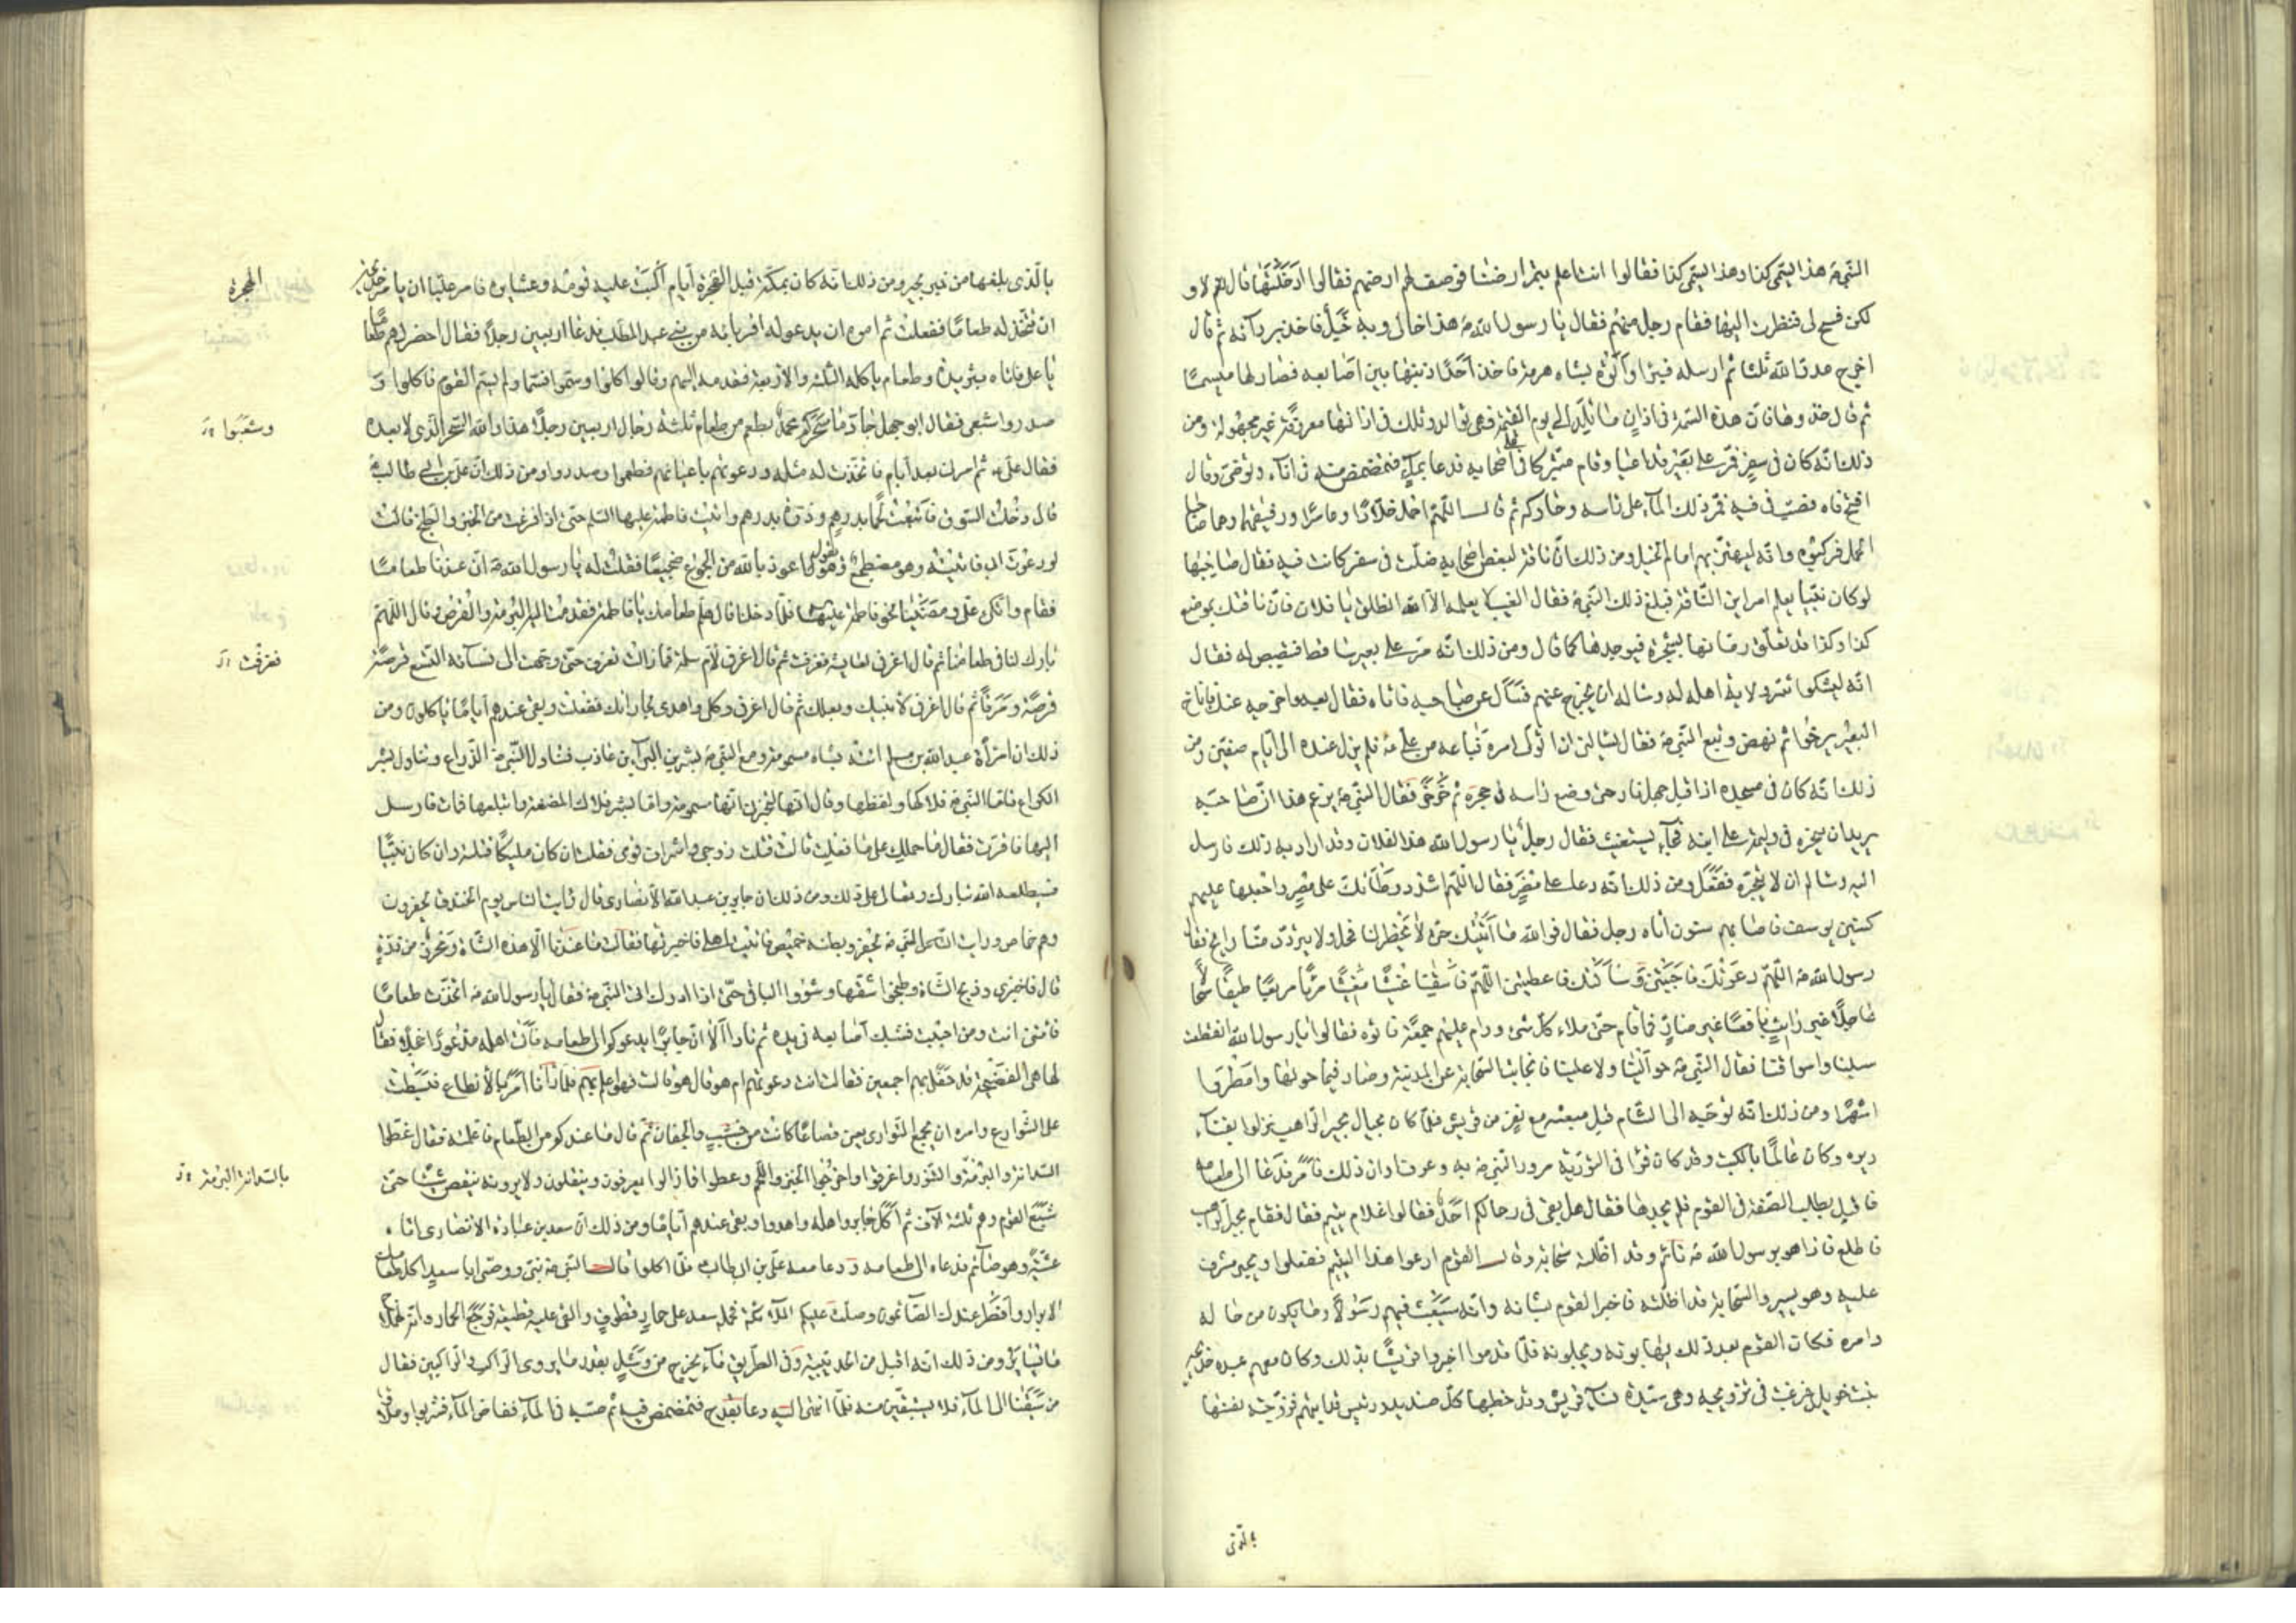 النبي ص هذا ابتمي كذا وهذا ابتمي كذا فقالوا انت اعلم بتمر ارضنا فوصف لهم ارضهم فقالوا ادخلتها قال لا و
لكن فسح لي فنظرت اليها فقام رجل منهم فقال يا رسول الله ص هذا خالي وبه خبل فاخذ بردائه ثم قال
اخرج عدو الله ثلثا ثم ارسله فبرأ واتوه بشاه هرمة فاخذ احد اذنيها بين اصابعه فصار لها ميسما
ثم قال خذوها فان هذه السمة في اذان ما تلد الى يوم القيمة فهي توالد وتلك في اذانها معروفة غير مجهولة ومن
ذلك انه كان في سفر فمر على بعير قد اعيا وقام منزلا على اصحابه فدعا بماء فتمضمض منه في اناء وتوضئ وقال
افتح فاه فصب في فيه فمر ذلك الماء على راسه وحاركه ثم قال اللهم احمل خلادا وعامرا ورفيقهما وهما صاحبا
الجمل فركبوه وانه ليهتز بهم امام الخيل ومن ذلك ان ناقة لبعض اصحابه ضلت في سفر كانت فيه فقال صاحبها
لو كان نبيا يعلم امر اين الناقة فبلغ ذلك النبي ص فقال الغيب لا يعلمه الا الله انطلق يا فلان فان ناقتك بموضع
كذا وكذا قد تعلق زمامها بشجرة فوجدها كما قال ومن ذلك انه مر على بعير ساقط فتبصبص له فقال
انه ليشكوا شر ولاية اهله له وساله ان يخرج عنهم فسأل عن صاحبه فاتاه فقال بعه واخرجه عنك فاناخ
البعير يرغوا ثم نهض وتبع النبي ص فقال يسالني ان اتولى امره فباعه من علي ع فلم يزل عنده الى ايام صفين ومن
ذلك انه كان في مسجده اذ اقبل جمل ناد حتى وضع راسه في حجره ثم خرخر فقال النبي ص يزعم هذا ان صاحبه
يريد ان ينحره في وليمة على ابنه فجاء يستغيث فقال رجل يا رسول الله هذا لفلان وقد اراد به ذلك فارسل
اليه وساله ان لا ينحره ففعل ومن ذلك انه دعا على مضر فقال اللهم اشدد وطأتك على مضر واجعلها عليهم
كسنين يوسف فاصابهم سنون فاتاه رجل فقال فوالله ما اتيتك حتى لا يخطر لنا فحل ولا يتردد منا رايح فقال
رسول الله ص اللهم دعوتك فاجبتني وسألتك فاعطيتني اللهم فاسقنا غيثا مغيثا مريا مريعا طبقا سجالا
عاجلا غير رايث نافعا غير ضار فما قام حتى ملأ كل شئ ودام عليهم جمعة فاتوه فقالوا يا رسول الله انقطعت
سبلنا واسواقنا فقال النبي ص حوالينا ولا علينا فانجابت السحابة عن المدينة وصار فيما حولها وامطروا
اشهرا ومن ذلك انه توجه الى الشام قبل مبعثه مع نفر من قريش فلما كان بحيال بحير الراهب نزلوا بفناء
ديره وكان عالما بالكتب وقد كان قرأ في التورية مرور النبي ص به وعرف اوان ذلك فامر فدعا الى طعامه
فاقبل يطلب الصفة في القوم فلم يجدها فقال هل بقي في رحالكم احد فقالوا غلام يتيم فقال فقام بحير الراهب
فاطلع فاذا هو برسول الله ص نائم وقد اظلته سحابة وقال للقوم ادعوا هذا اليتيم ففعلوا وبحير مشرف
عليه وهو يسير والسحابة قد اظلته فاخبر القوم بشانه وانه سيبعث فيهم رسولا وما يكون من حاله
وامره فكان القوم بعد ذلك يهابونه ويجلونه فلما قدموا اخبروا قريشا بذلك وكان معهم عبد خديجة
بنت خويلد فرغبت في تزويجه وهي سيدة نساء قريش وقد خطبها كل صنديد ورئيس قد ابتهم فزوجته نفسها
بالذي
بالذي بلغها من خبر بحير ومن ذلك انه كان بمكة قبل الهجرة ايام البت عليه قومه وعشايره فامر عليا ان يامر خديجة
ان تتخذ له طعاما ففعلت ثم امره ان يدعو له اقربائه من بني عبد المطلب فدعا اربعين رجلا فقال احضر لهم طعاما
يا علي فاتاه بثريدة وطعام ياكله الثلثة والاربعة فقدمه اليهم وقالوا كلوا وسموا فسما ولم يسم القوم فاكلوا و
صدروا شبعى فقال ابو جهل جاد ما سحركم محمد يطعم من طعام ثلثة رجال اربعين رجلا هذا والله السحر الذي لا بعده
فقال علي ع ثم امرني بعد ايام فاتخذت له مثله ودعوتهم باعيانهم فطعموا وصدروا ومن ذلك ان علي بن ابي طالب ع
قال دخلت السوق فابتعت لحما بدرهم وذرة بدرهم واتيت فاطمة عليها السلم حتى اذا فرغت من الخبز والطبخ قالت
لو دعوت ابي فاتيته وهو مضطجع وهو يقول اعوذ بالله من الجوع ضجيعا فقلت له يا رسول الله ص ان عندنا طعاما
فقام واتكى علي ومضينا نحو فاطمة ع فلما دخلنا قال هلم طعامك يا فاطمة فقدمت اليه البرمة والقرص وقال اللهم
بارك لنا في طعامنا ثم قال اغرفي لعايشة فغرفت ثم قال اغرفي لام سلمة فما زالت تغرف حتى وجهت الى نسائه التسع قرصة
قرصة ومرقا ثم قال اغرفي لابنيك وبعلك ثم قال اغرفي وكلي واهدي لجاراتك ففعلت وبقي عندهم اياما ياكلون ومن
ذلك ان امرأة عبد الله بن مسلم اتته بشاه مسمومة ومع النبي ص بشر بن البراء بن عازب فتناول النبي ص الذراع وتناول بشر
الكراع فاما النبي ص فلاكها ولفظها وقال انها لتخبرني انها مسمومة واما بشر فلاك المضغة وابتلعها فمات فارسل
اليها فاقرت فقال ما حملك على ما فعلت قالت قتلت زوجي واشراف قومي فقلت ان كان ملكا قتلته وان كان نبيا
فسيطلعه الله تبارك وتعالى على ذلك ومن ذلك ان جابر بن عبد الله الانصاري قال رايت الناس يوم الخندق يحفرون
وهم خماص ورايت النبي ص يحفر وبطنه خميص فاتيت اهلي فاخبرتها فقالت ما عندنا الا هذه الشاة ومحرز من ذرة
قال فاخبزي وذبح الشاة وطبخوا شقها وشووا الباقي حتى اذا ادرك اتى النبي ص فقال يا رسول الله ص اتخذت طعاما
فائتني انت ومن احببت فشبك اصابعه في يده ثم نادا الا ان جابرا يدعوكم الى طعامه فاتى اهله مذعورا خجلا فقال
لها هي الفضيحة قد حفل بهم اجمعين فقالت انت دعوتهم ام هو قال هو قالت فهو اعلم بهم فلما رآنا امر بالانطاع فبسطت
على الشوارع وامره ان يجمع التواري يعني قصاعا كانت من خشب والجفان ثم قال ما عندكم من الطعام فاعلمته فقال غطوا
السدانة والبرمة والتنور واغرفوا واخرجوا الخبز واللحم وغطوا فما زالوا يغرفون وينقلون ولا يرونه ينقص شيئا حتى
شبع القوم وهم ثلثة الاف ثم اكل جابر واهله واهدوا وبقي عندهم اياما ومن ذلك ان سعد بن عبادة الانصاري اتاه
عشية وهو صائم فدعاه الى طعامه ودعا معه علي بن ابي طالب ع فلما اكلوا قال النبي ص نبي ووصي ايا سعد اكل طعامك
الابرار وافطر عندك الصائمون وصلت عليكم الملائكة فحمله سعد على حمار قطوف والقى عليه قطيفة فرجع الحمار وانه لهملاج
ما يساير ومن ذلك انه اقبل من الحديبية وفي الطريق ماء يخرج من وشل بقدر ما يروى الراكب والراكبين فقال
من سبقنا الى الماء فلا يستقين منه فلما انتهى اليه دعا بقدح فتمضمض فيه ثم صبه في الماء ففاض الماء فشربوا وملاؤا
الهجرة
وشبعوا
فغرفت
بالسدانة البرمة